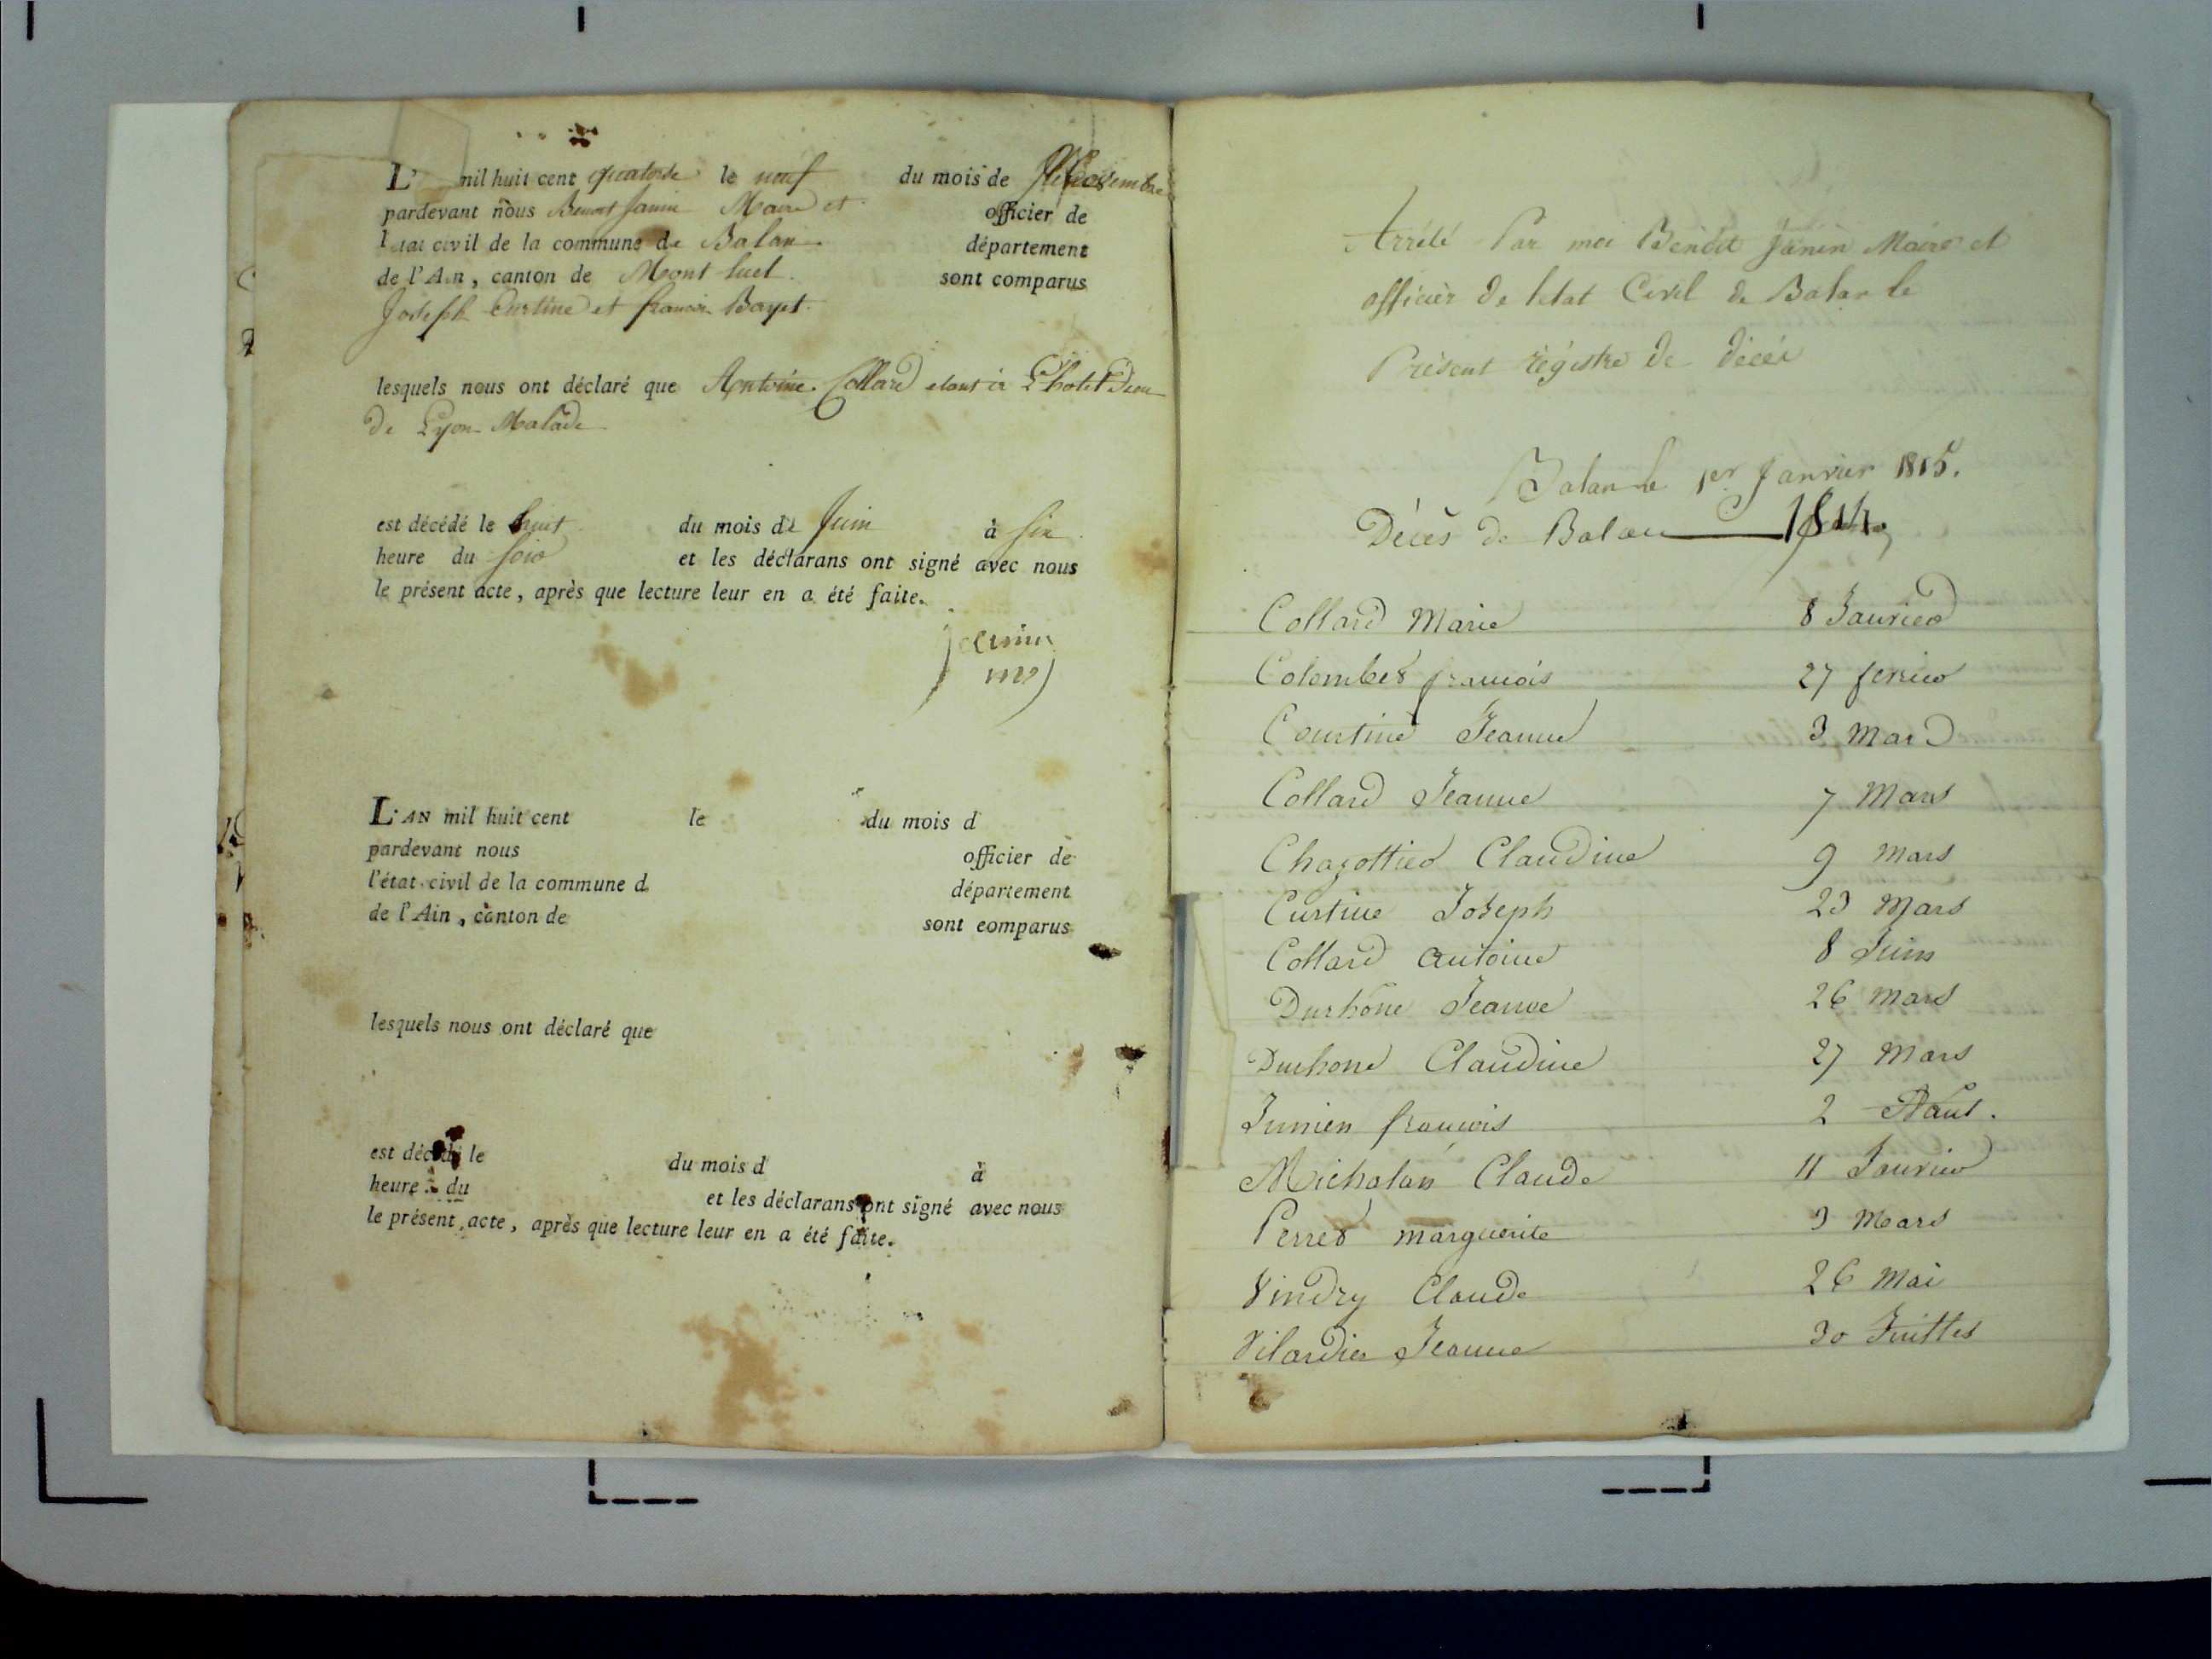 L' mil huit cent quatorse le neuf du mois de
pardevant nous Benoit Janin Maire et officier de
l'état civil de la commune de Balan département
de l'Ain, canton de Mont luel sont comparus
Joseph Curtine et francois Bayet
lesquels nous ont déclaré que Antoine Collard etant à L'hotel Dieu
de Lyon Malade
est décédé le huit du mois de Juin à six
heure du soir et les déclarans ont signé avec nous
le présent acte, après que lecture leur en a été faite.
L'AN mil huit cent le du mois d
pardevant nous officier de
l'état civil de la commune d département
de l'Ain, canton de sont comparus
lesquels nous ont déclaré que
est décédé le du mois d à
heure du et les déclarans ont signé avec nous
le présent acte, après que lecture leur en a été faite.
Arrété Par moi Benoit Janin Maire et
officier de letat Civil de Balan le
Présent régistre de décés
Balan le 1er Janvier 1815.
Décès de Balan 1814
Collard Marie 8 Janvier
Colombet francois 27 fevrier
Courtine Jeanne 3 Mars
Collard Jeanne 7 Mars
Chazottier Claudine 9 Mars
Curtine Joseph 23 Mars
Collard Antoine 8 Juin
Durhône Jeanne 26 Mars
Durhone Claudine 27 Mars
Jumien francois 2 Aout.
Michalan Claude 11 Janvier
Perret marguerite 3 Mars
Vindry Claude 26 Mai
Vilardier Jeanne 30 Juillet